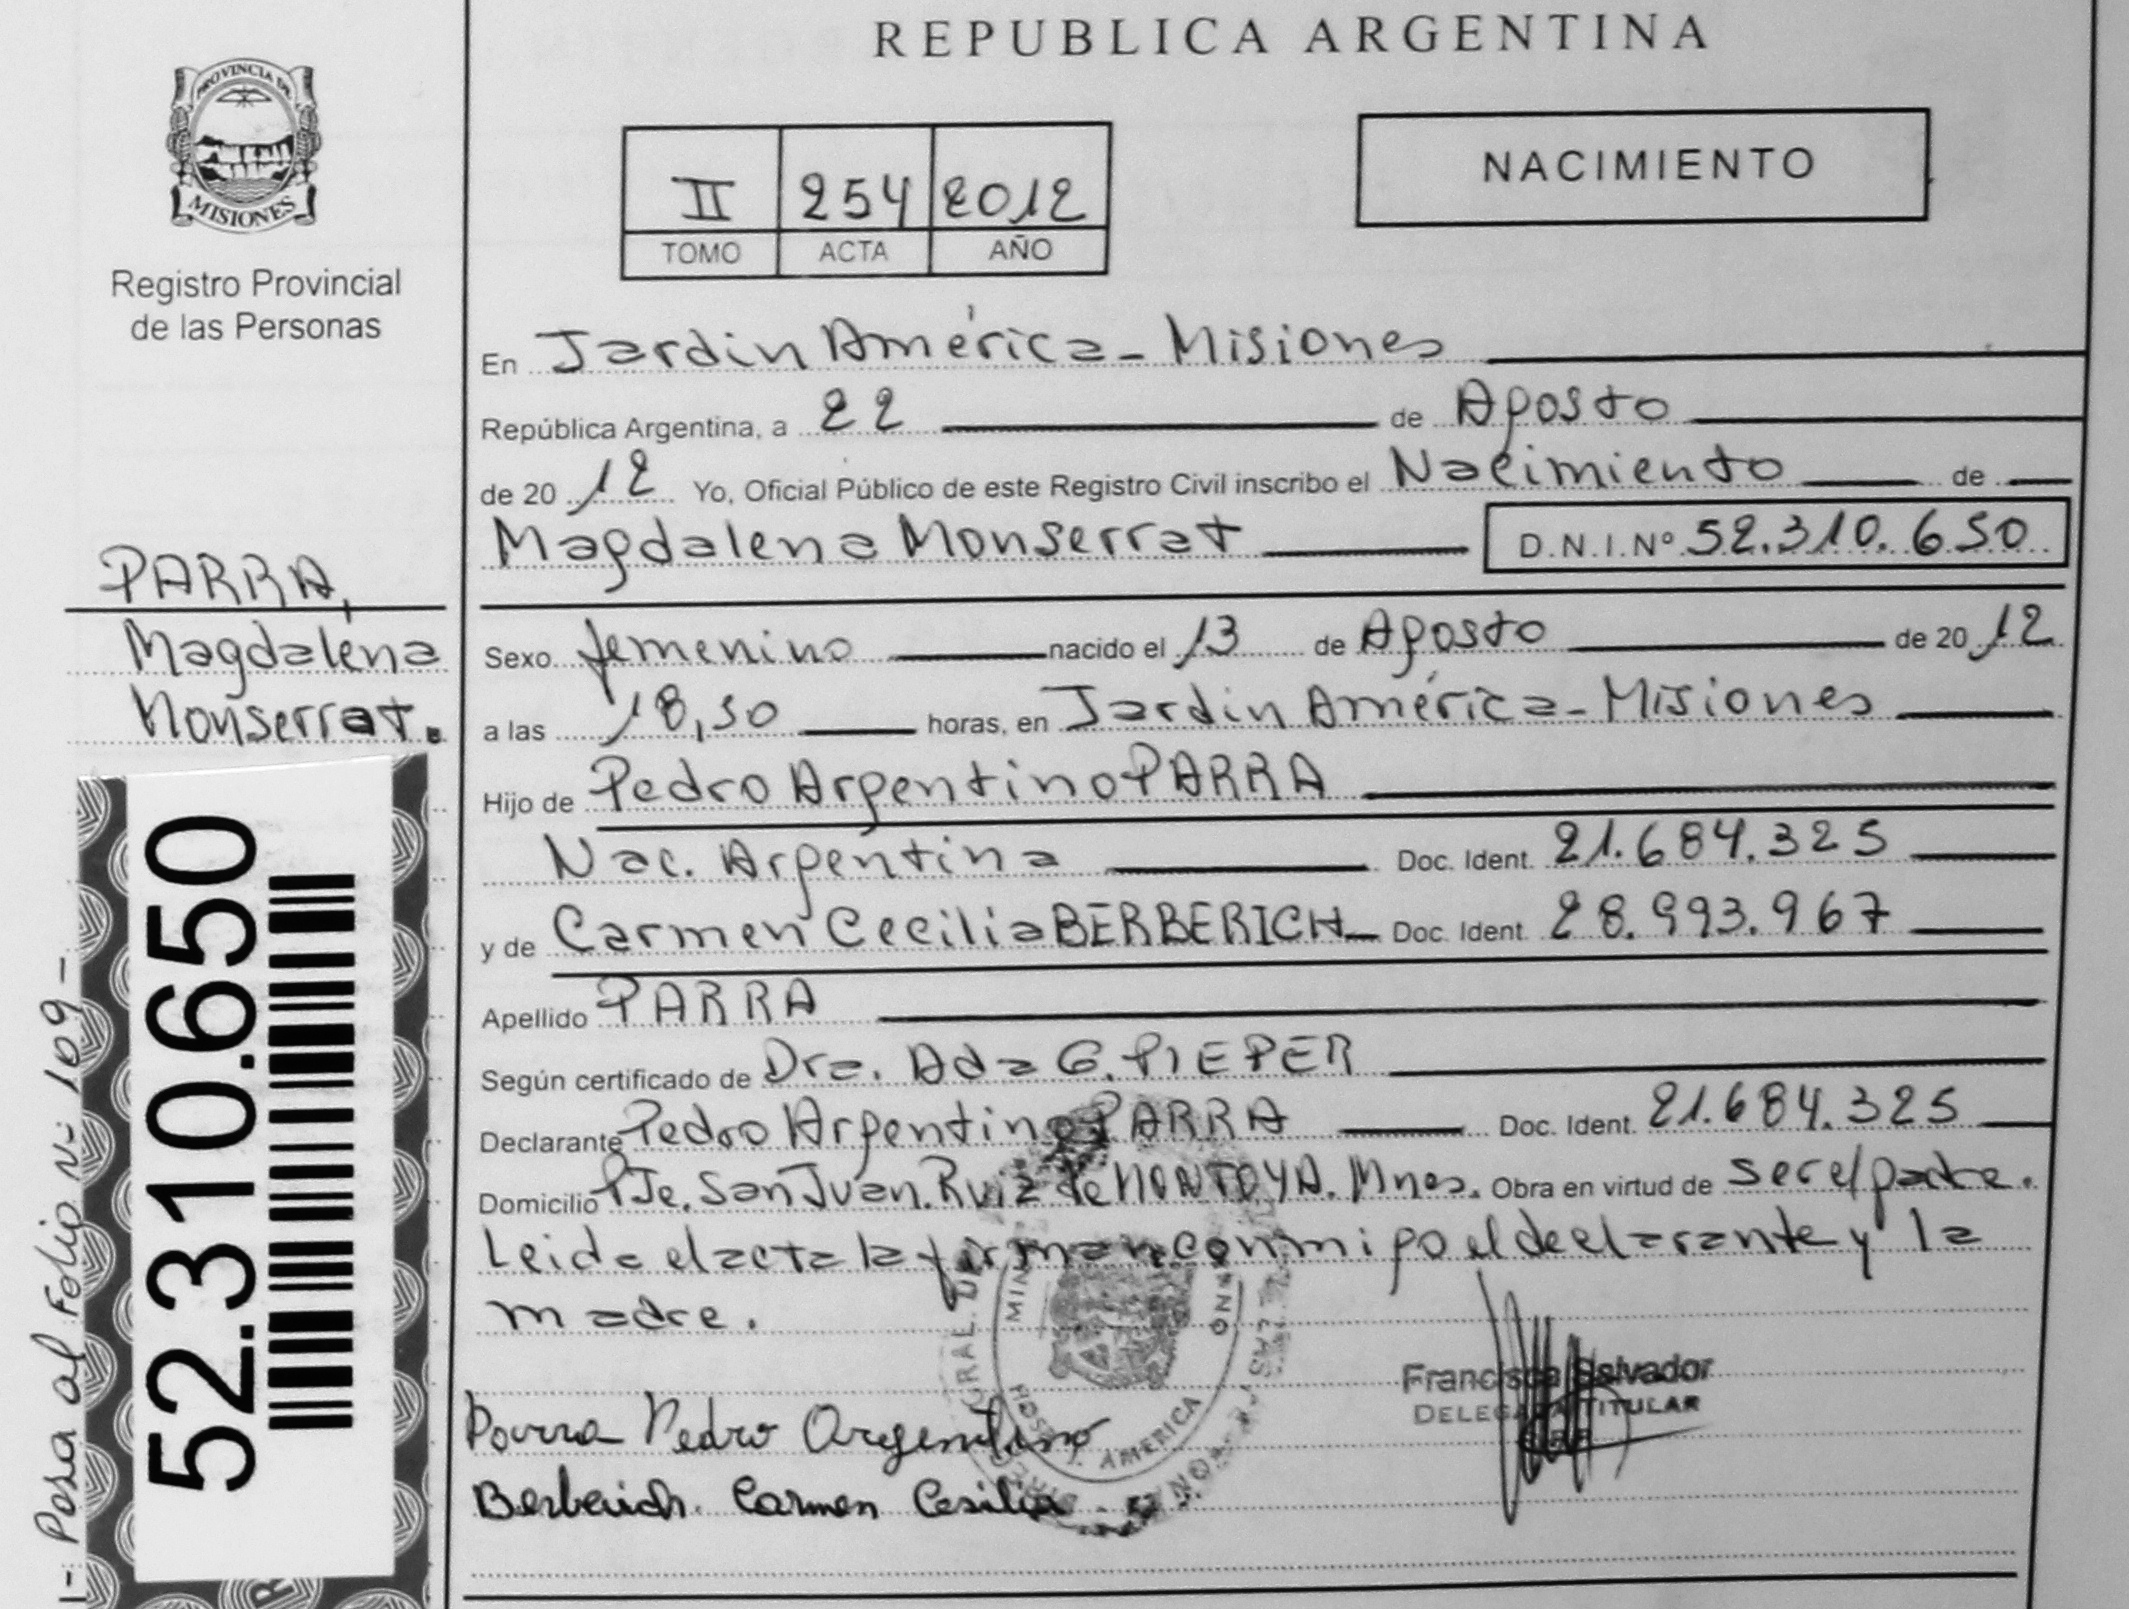 REPUBLICA ARGENTINA
PROVINCIA DE
MISIONES
Registro Provincial
de las Personas
II 254 2012
TOMO ACTA AÑO
NACIMIENTO
En Jardin América - Misiones
República Argentina, a 22 de Agosto
de 2012 Yo, Oficial Público de este Registro Civil inscribo el Nacimiento de
Magdalena Monserrat D.N.I.Nº 52.310.650
PARRA,
Magdalena
Monserrat.
Sexo femenino nacido el 13 de Agosto de 2012
a las 18,30 horas, en Jardin América - Misiones
Hijo de Pedro Argentino PARRA
Nac. Argentina Doc. Ident. 21.684.325
y de Carmen Cecilia BERBERICH Doc. Ident. 28.993.967
Apellido PARRA
Según certificado de Dra. Ada G. PIEPER
Declarante Pedro Argentino PARRA Doc. Ident. 21.684.325
Domicilio Pje. San Juan. Ruiz de MONTOYA. Mnes. Obra en virtud de ser el padre.
Leida el acta la firman conmigo el declarante y la
madre.
Francisca Salvador
DELEGADA TITULAR
Parra Pedro Argentino
Berberich Carmen Cesilia
AMERICA
52.310.650
1-: Pasa al Folio Nº 109-